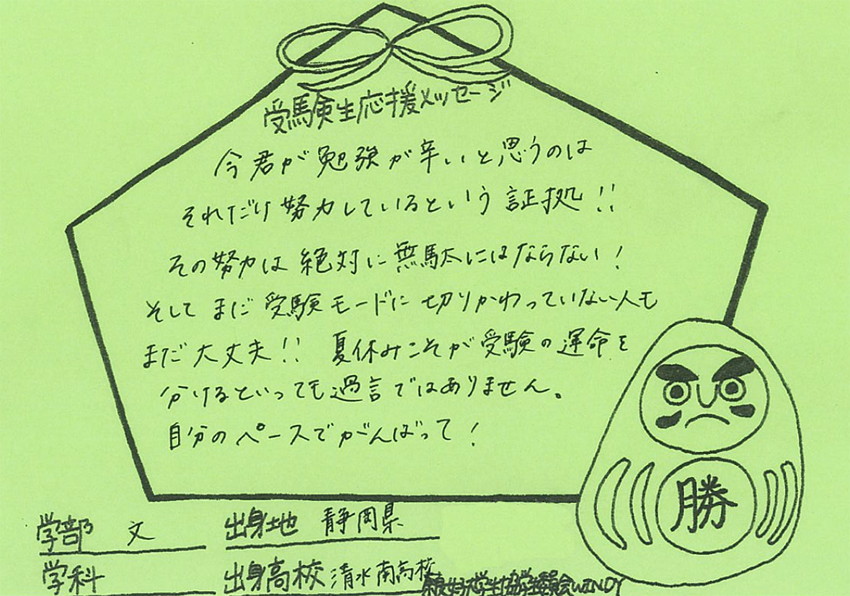 受験生応援メッセージ
今君が勉強が辛いと思うのは
それだけ努力しているという証拠!!
その努力は絶対に無駄にはならない!
そしてまだ受験モードに切りかわっていない人も
まだ大丈夫!! 夏休みこそが受験の運命を
分けるといっても過言ではありません。
自分のペースでがんばって!
勝
学部 文 出身地 静岡県
学科 出身高校 清水南高校
WINDY